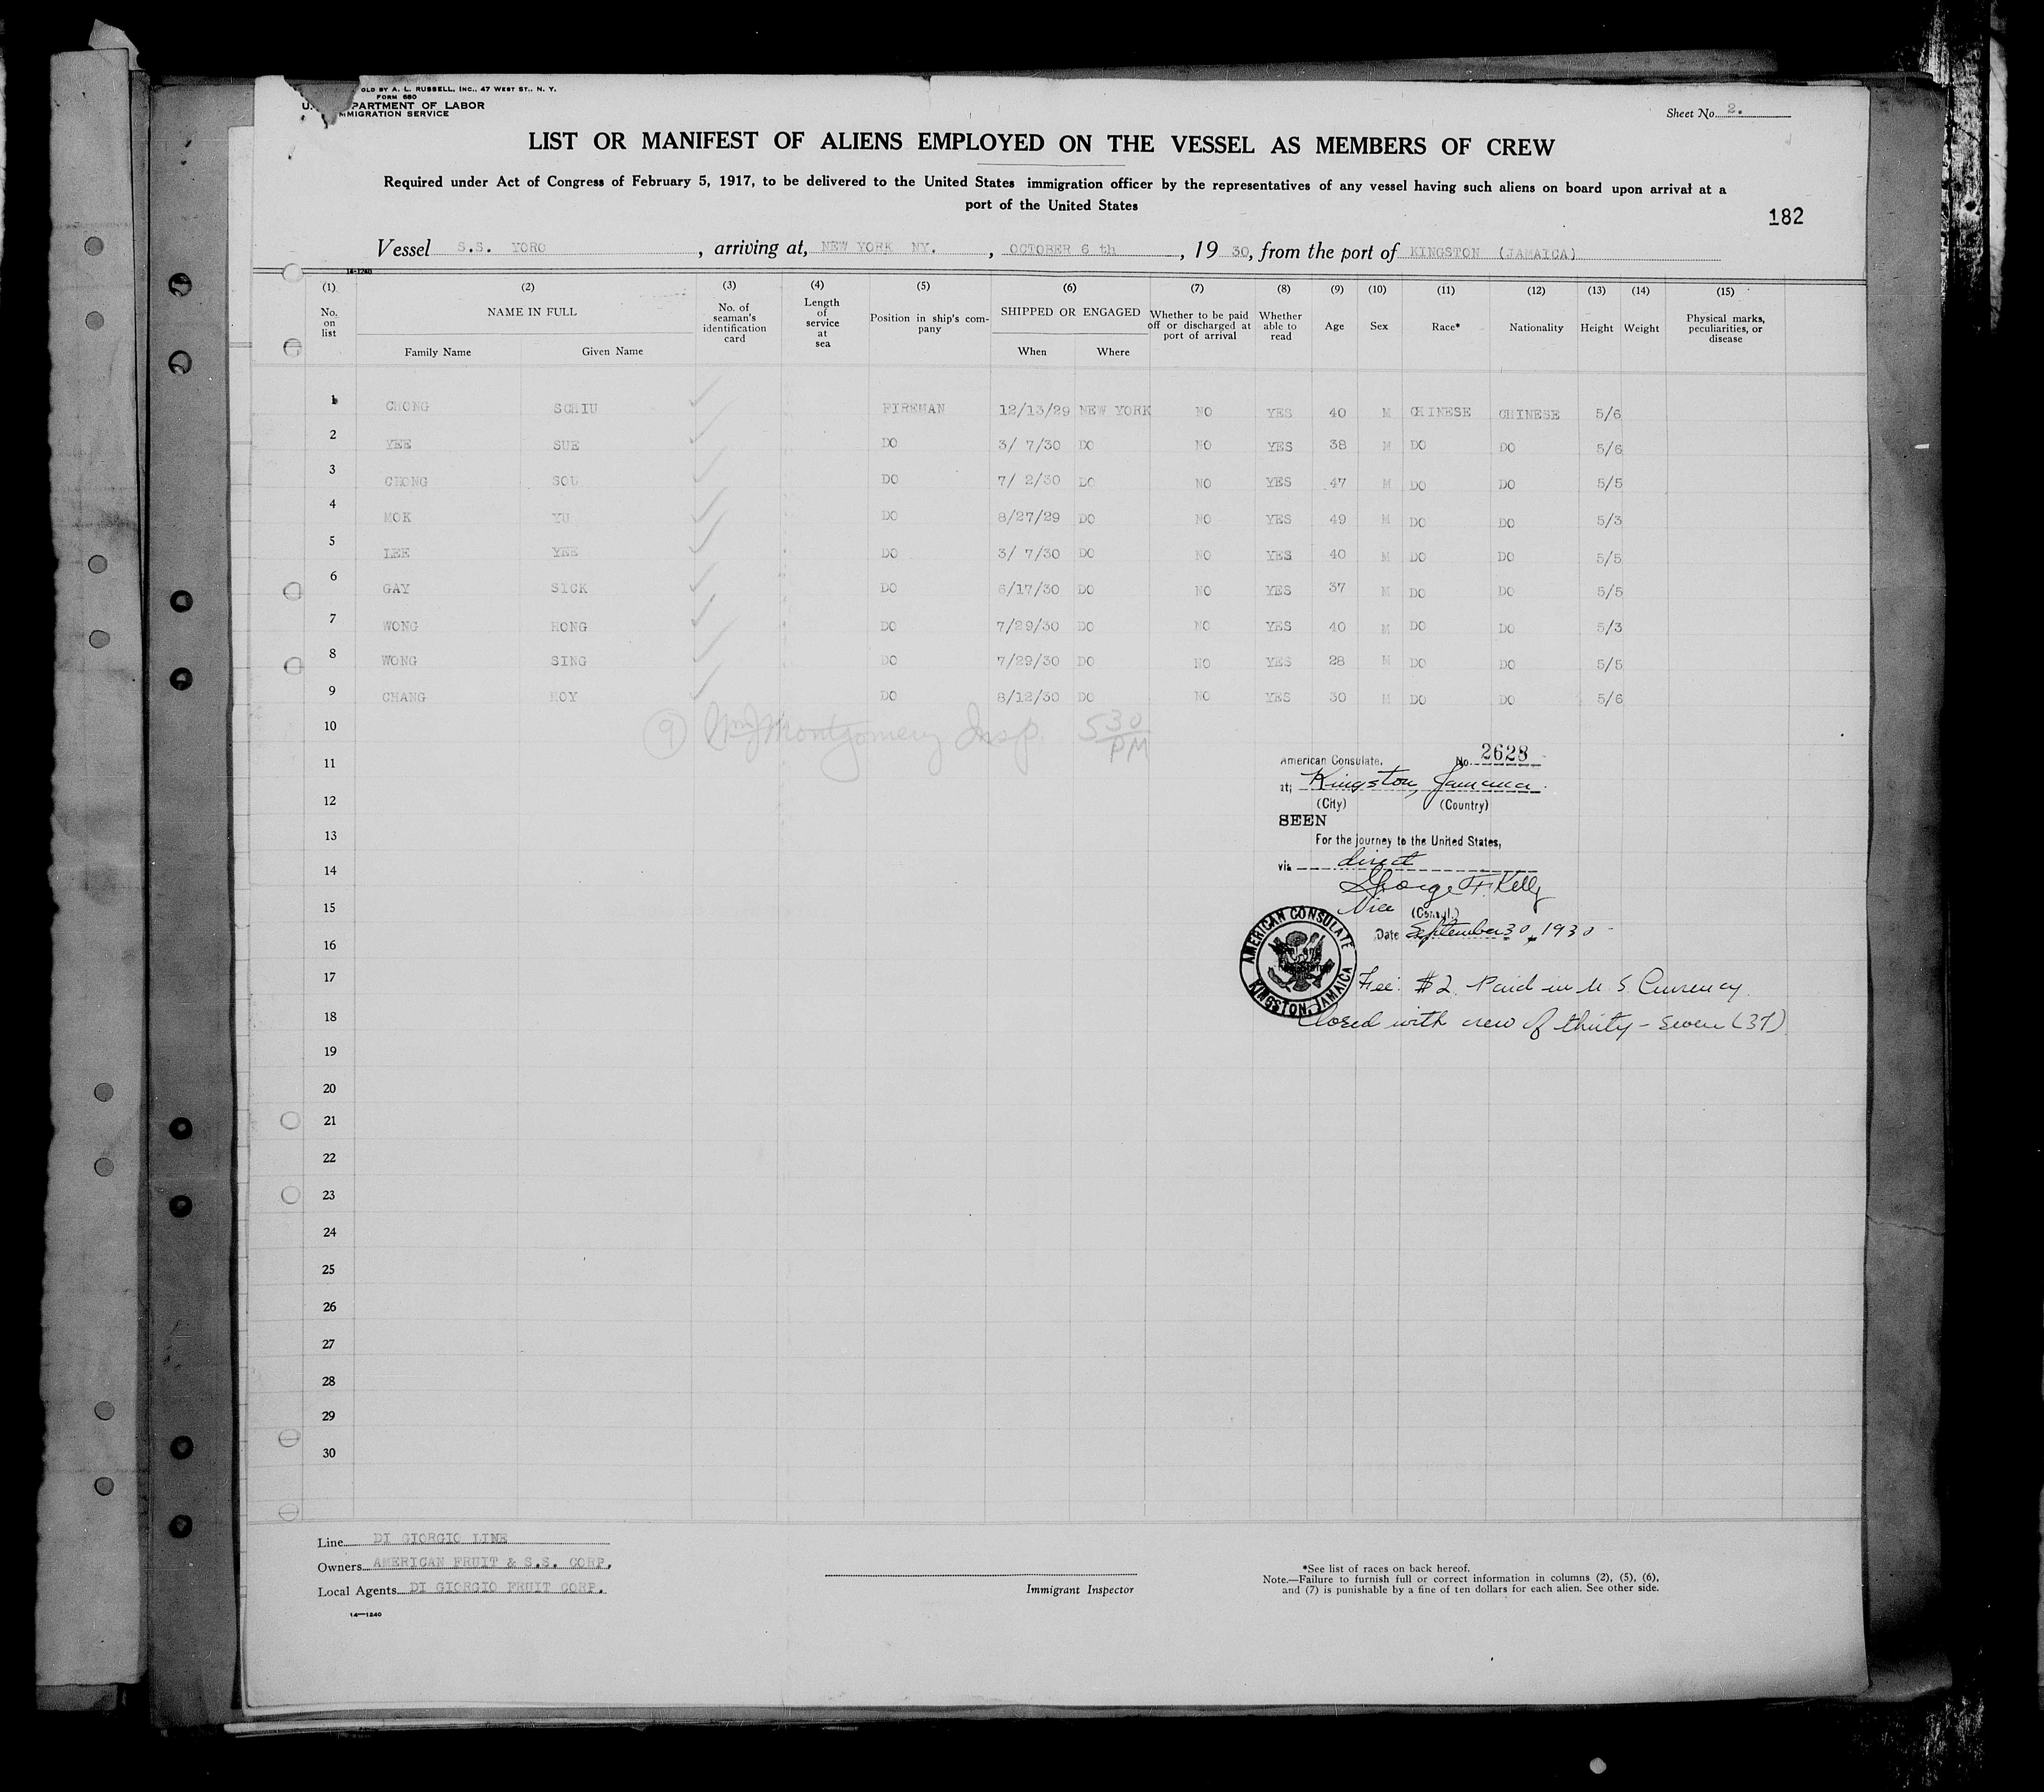 OLD BY A. L. RUSSELL, INC., 47 WEST ST., N. Y.
FORM 680
U. PARTMENT OF LABOR
MMIGRATION SERVICE
Sheet No. 2.
LIST OR MANIFEST OF ALIENS EMPLOYED ON THE VESSEL AS MEMBERS OF CREW
Required under Act of Congress of February 5, 1917, to be delivered to the United States immigration officer by the representatives of any vessel having such aliens on board upon arrival at a
port of the United States
182
Vessel S.S. YORO, arriving at, NEW YORK NY., OCTOBER 6 th, 19 30, from the port of KINGSTON (JAMAICA)
14-1240
(1) (2) (3) (4) (5) (6) (7) (8) (9) (10) (11) (12) (13) (14) (15)
No. on list NAME IN FULL Family Name Given Name No. of seaman's identification card Length of service at sea Position in ship's company SHIPPED OR ENGAGED When Where Whether to be paid off or discharged at port of arrival Whether able to read Age Sex Race* Nationality Height Weight Physical marks, peculiarities, or disease
1 CHONG SCHIU FIREMAN 12/13/29 NEW YORK NO YES 40 M CHINESE CHINESE 5/6
2 YEE SUE DO 3/ 7/30 DO NO YES 38 M DO DO 5/6
3 CHONG SOU DO 7/ 2/30 DO NO YES 47 M DO DO 5/5
4 MOK YU DO 8/27/29 DO NO YES 49 M DO DO 5/3
5 LEE YEE DO 3/ 7/30 DO NO YES 40 M DO DO 5/5
6 GAY SICK DO 6/17/30 DO NO YES 37 M DO DO 5/5
7 WONG HONG DO 7/29/30 DO NO YES 40 M DO DO 5/3
8 WONG SING DO 7/29/30 DO NO YES 28 M DO DO 5/5
9 CHANG HOY DO 8/12/30 DO NO YES 30 M DO DO 5/6
10 9 Wm J Montgomery Insp. 5 30 PM
11
12
13
14
15
16
17
18
19
20
21
22
23
24
25
26
27
28
29
30
American Consulate. No. 2628
at; Kingston, Jamaica.
(City) (Country)
SEEN
For the journey to the United States,
via direct
George F. Kelly
Vice (Consul.)
Date September 30, 1930
AMERICAN CONSULATE
KINGSTON, JAMAICA
Fee: $2. Paid in U. S. Currency.
Closed with crew of thirty-seven (37)
Line DI GIORGIO LINE
Owners AMERICAN FRUIT & S.S. CORP.
Local Agents DI GIORGIO FRUIT CORP.
14—1240
Immigrant Inspector
*See list of races on back hereof.
Note.—Failure to furnish full or correct information in columns (2), (5), (6),
and (7) is punishable by a fine of ten dollars for each alien. See other side.